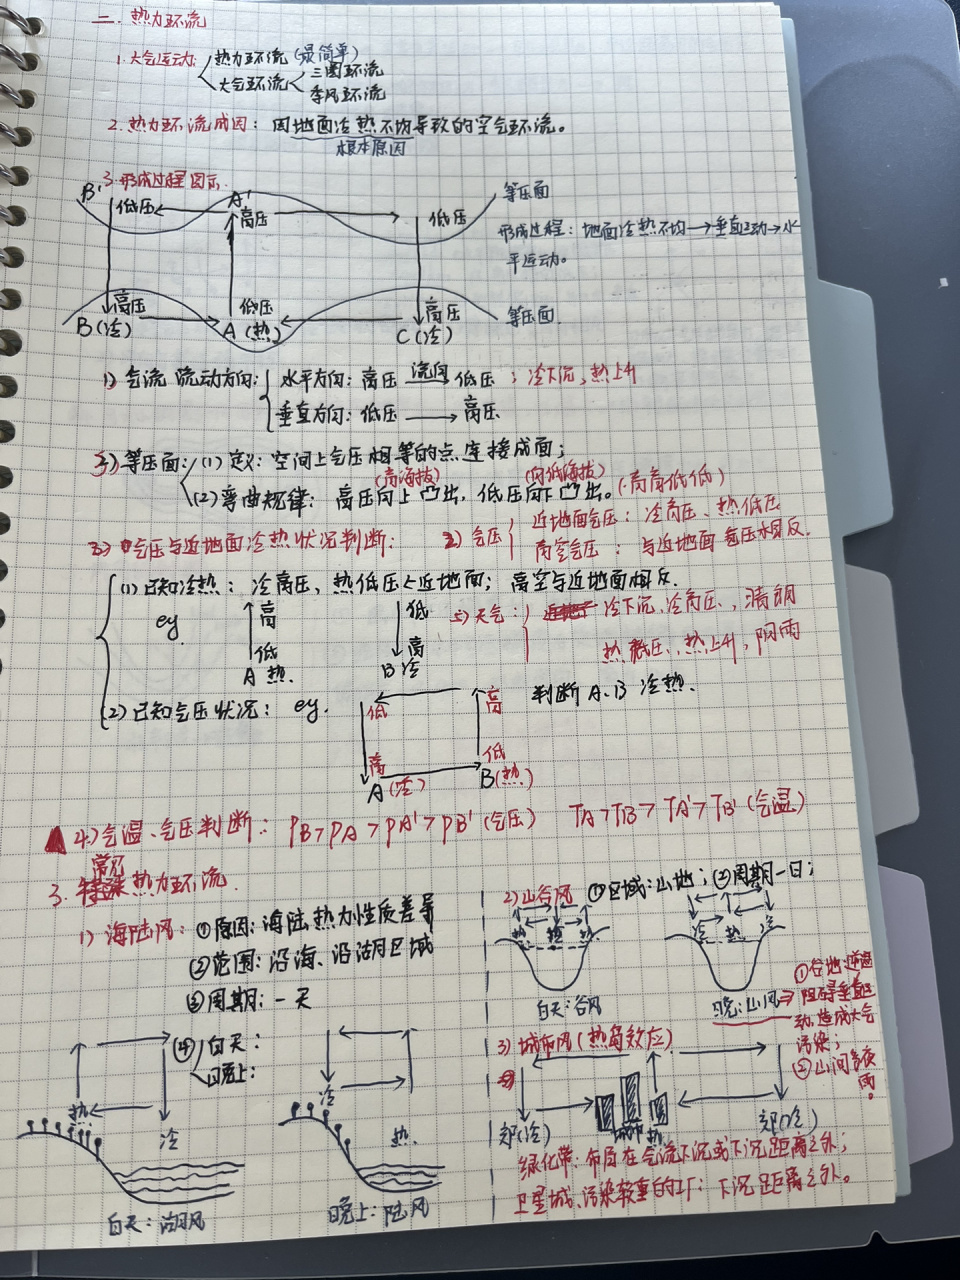 二. 热力环流
1. 大气运动 热力环流(最简单)
大气环流 三圈环流
季风环流
2. 热力环流成因: 因地面冷热不均导致的空气环流。
根本原因
3. 形成过程图示.
B' 低压 A' 高压 低压 等压面
形成过程: 地面冷热不均→垂直运动→水
平运动。
高压 低压 高压 等压面
B(冷) A(热) C(冷)
1) 气流流动方向: 水平方向: 高压 流向 低压; 冷下沉, 热上升
垂直方向: 低压 → 高压
等压面: (1) 定义: 空间上气压相等的点连接成面;
(高海拔) (向低海拔)
(2) 弯曲规律: 高压向上凸出, 低压向下凸出。(高高低低)
2) 气压 近地面气压: 冷高压、热低压
高空气压: 与近地面气压相反.
3) 气压与近地面冷热状况判断:
(1) 已知冷热: 冷高压, 热低压←近地面; 高空与近地面相反.
eg. 高 低
低 高
A 热. B 冷
5) 天气: 冷下沉, 冷高压, 晴朗
热低压, 热上升, 阴雨
(2) 已知气压状况: eg. 判断 A、B 冷热.
低 高
高 低
A(冷) B(热)
4) 气温、气压判断: PB>PA>PA'>PB'(气压) TA>TB>TA'>TB'(气温)
常见
3. 热力环流.
1) 海陆风: ①原因: 海陆热力性质差异
②范围: 沿海、沿湖区域
③周期: 一天
④ 白天:
晚上:
热 冷
白天: 湖风
冷 热
晚上: 陆风
2) 山谷风 ①区域: 山地; ②周期一日;
冷 热 冷
白天: 谷风
晚: 山风⇒ ①谷地逆温
阻碍垂直运
动, 造成大气
污染;
②山间多夜
雨。
3) 城市风(热岛效应)
郊(冷) 城市 热 郊(冷)
绿化带: 布局在气流下沉或下沉距离之外;
卫星城、污染较重的工厂: 下沉距离之外。